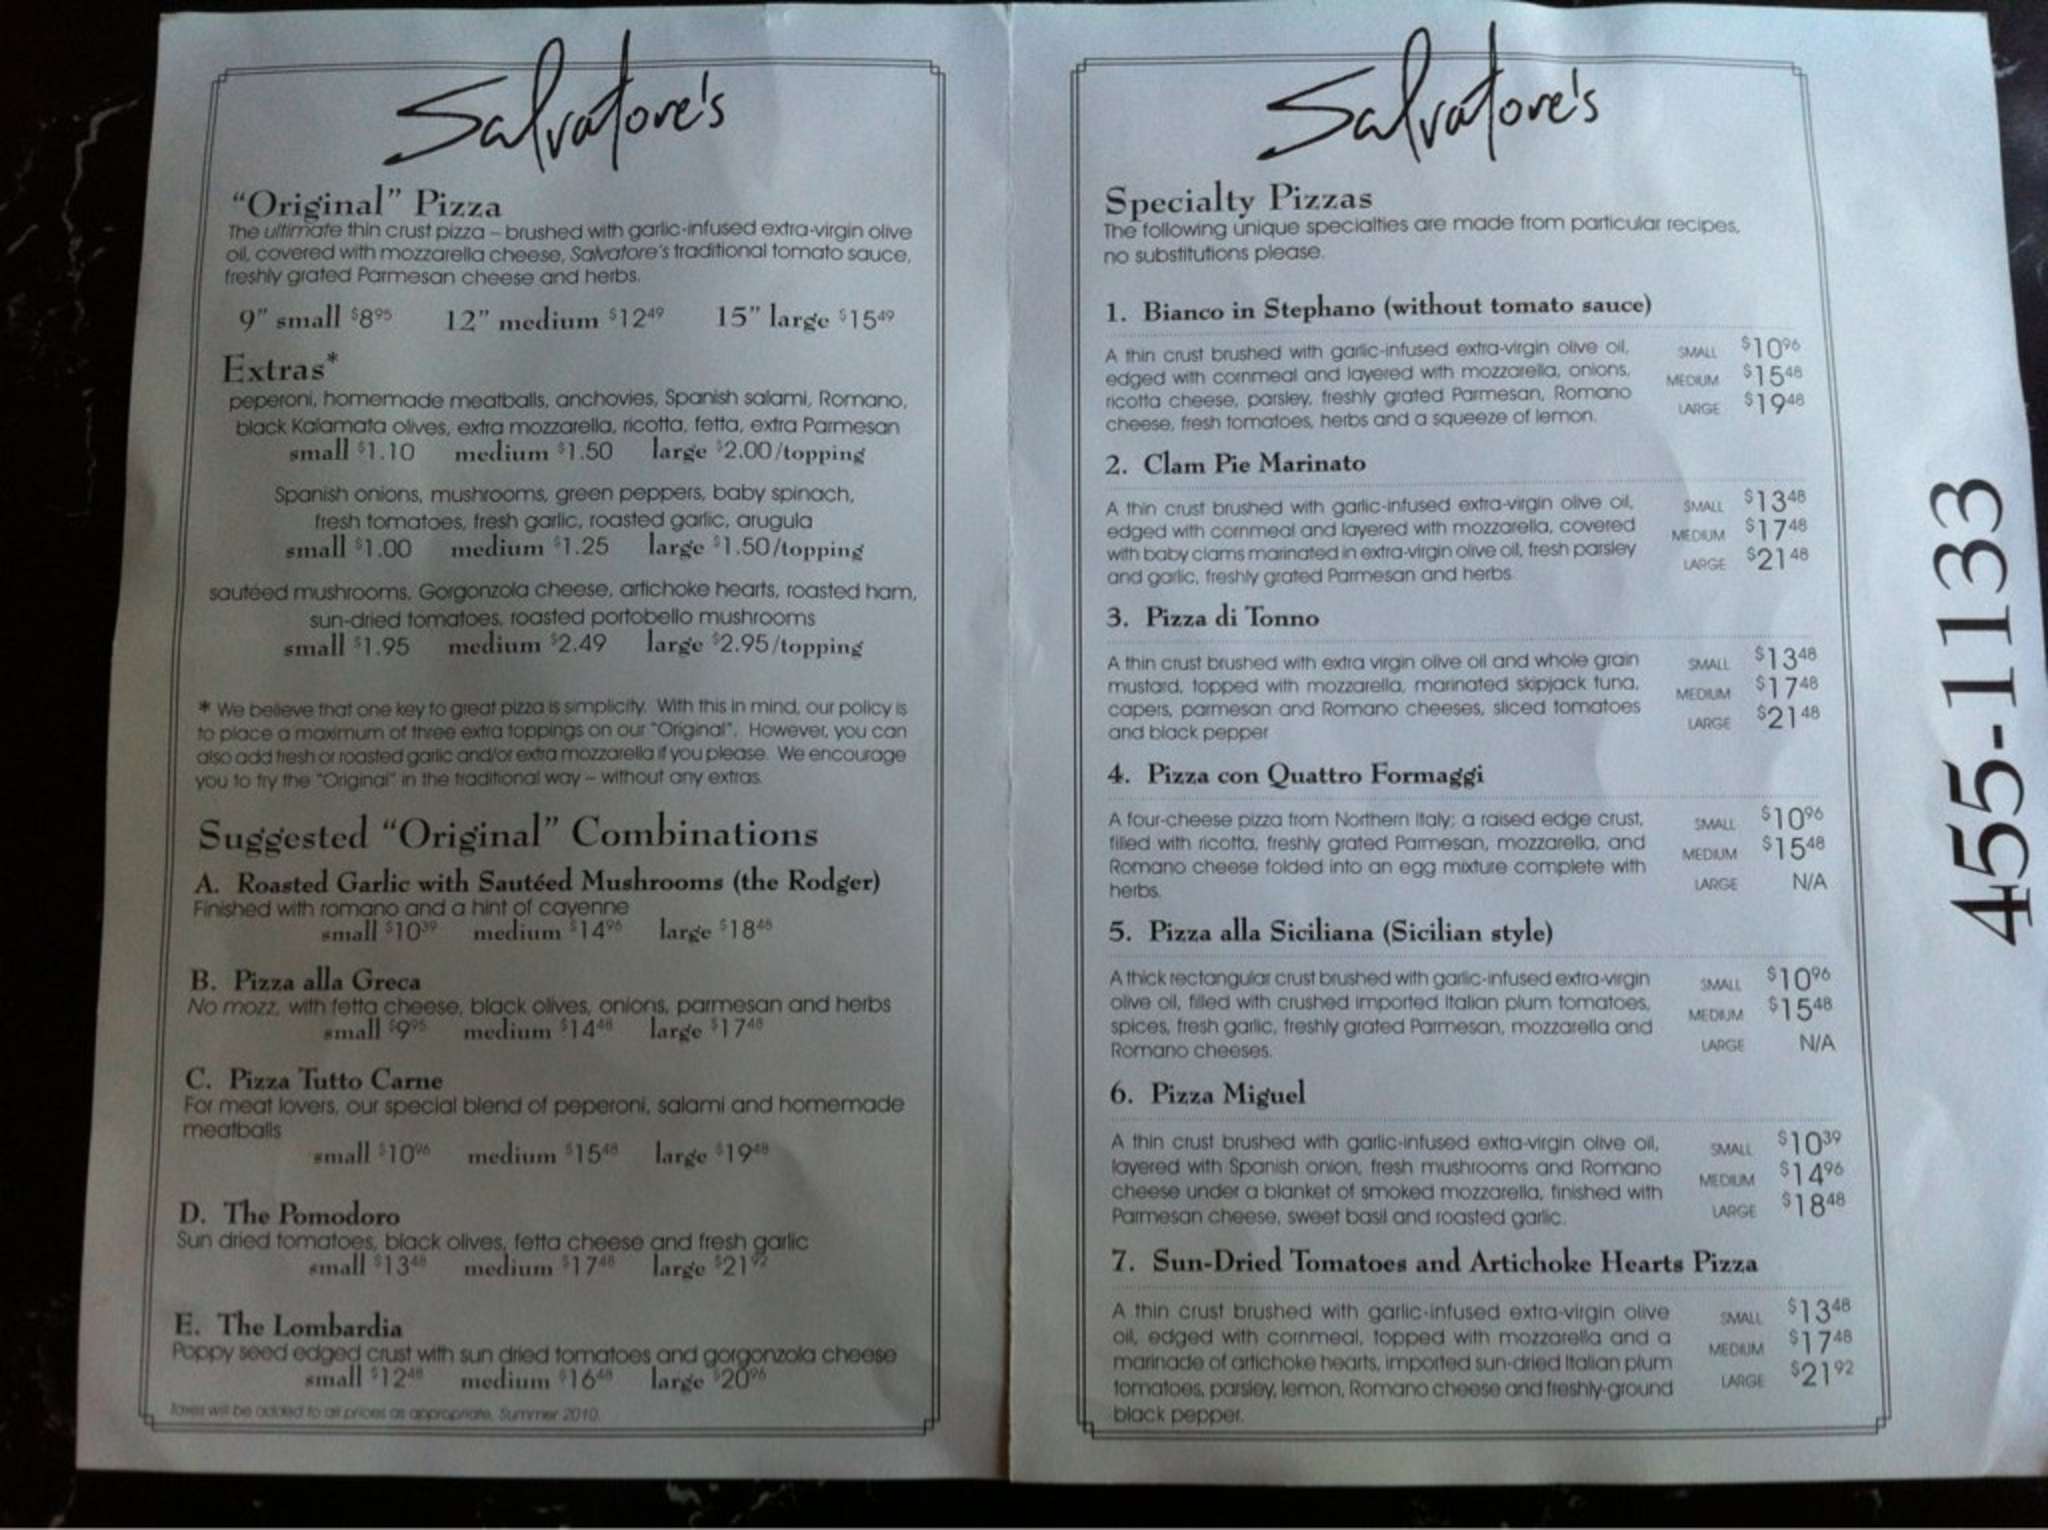 Salvatore's
"Original" Pizza
The ultimate thin crust pizza – brushed with garlic-infused extra-virgin olive
oil, covered with mozzarella cheese, Salvatore's traditional tomato sauce,
freshly grated Parmesan cheese and herbs.
9" small $8.95 12" medium $12.49 15" large $15.49
Extras*
peperoni, homemade meatballs, anchovies, Spanish salami, Romano,
black Kalamata olives, extra mozzarella, ricotta, fetta, extra Parmesan
small $1.10 medium $1.50 large $2.00/topping
Spanish onions, mushrooms, green peppers, baby spinach,
fresh tomatoes, fresh garlic, roasted garlic, arugula
small $1.00 medium $1.25 large $1.50/topping
sautéed mushrooms, Gorgonzola cheese, artichoke hearts, roasted ham,
sun-dried tomatoes, roasted portobello mushrooms
small $1.95 medium $2.49 large $2.95/topping
* We believe that one key to great pizza is simplicity. With this in mind, our policy is
to place a maximum of three extra toppings on our "Original". However, you can
also add fresh or roasted garlic and/or extra mozzarella if you please. We encourage
you to try the "Original" in the traditional way – without any extras.
Suggested "Original" Combinations
A. Roasted Garlic with Sautéed Mushrooms (the Rodger)
Finished with romano and a hint of cayenne
small $10.39 medium $14.96 large $18.48
B. Pizza alla Greca
No mozz, with fetta cheese, black olives, onions, parmesan and herbs
small $9.95 medium $14.48 large $17.48
C. Pizza Tutto Carne
For meat lovers, our special blend of peperoni, salami and homemade
meatballs
small $10.96 medium $15.48 large $19.48
D. The Pomodoro
Sun dried tomatoes, black olives, fetta cheese and fresh garlic
small $13.48 medium $17.48 large $21.92
E. The Lombardia
Poppy seed edged crust with sun dried tomatoes and gorgonzola cheese
small $12.48 medium $16.48 large $20.96
Taxes will be added to all prices as appropriate, Summer 2010.
Salvatore's
Specialty Pizzas
The following unique specialties are made from particular recipes,
no substitutions please.
1. Bianco in Stephano (without tomato sauce)
A thin crust brushed with garlic-infused extra-virgin olive oil,
edged with cornmeal and layered with mozzarella, onions,
ricotta cheese, parsley, freshly grated Parmesan, Romano
cheese, fresh tomatoes, herbs and a squeeze of lemon.
SMALL $10.96
MEDIUM $15.48
LARGE $19.48
2. Clam Pie Marinato
A thin crust brushed with garlic-infused extra-virgin olive oil,
edged with cornmeal and layered with mozzarella, covered
with baby clams marinated in extra-virgin olive oil, fresh parsley
and garlic, freshly grated Parmesan and herbs.
SMALL $13.48
MEDIUM $17.48
LARGE $21.48
3. Pizza di Tonno
A thin crust brushed with extra virgin olive oil and whole grain
mustard, topped with mozzarella, marinated skipjack tuna,
capers, parmesan and Romano cheeses, sliced tomatoes
and black pepper
SMALL $13.48
MEDIUM $17.48
LARGE $21.48
4. Pizza con Quattro Formaggi
A four-cheese pizza from Northern Italy; a raised edge crust,
filled with ricotta, freshly grated Parmesan, mozzarella, and
Romano cheese folded into an egg mixture complete with
herbs.
SMALL $10.96
MEDIUM $15.48
LARGE N/A
5. Pizza alla Siciliana (Sicilian style)
A thick rectangular crust brushed with garlic-infused extra-virgin
olive oil, filled with crushed imported Italian plum tomatoes,
spices, fresh garlic, freshly grated Parmesan, mozzarella and
Romano cheeses.
SMALL $10.96
MEDIUM $15.48
LARGE N/A
6. Pizza Miguel
A thin crust brushed with garlic-infused extra-virgin olive oil,
layered with Spanish onion, fresh mushrooms and Romano
cheese under a blanket of smoked mozzarella, finished with
Parmesan cheese, sweet basil and roasted garlic.
SMALL $10.39
MEDIUM $14.96
LARGE $18.48
7. Sun-Dried Tomatoes and Artichoke Hearts Pizza
A thin crust brushed with garlic-infused extra-virgin olive
oil, edged with cornmeal, topped with mozzarella and a
marinade of artichoke hearts, imported sun-dried Italian plum
tomatoes, parsley, lemon, Romano cheese and freshly-ground
black pepper.
SMALL $13.48
MEDIUM $17.48
LARGE $21.92
455-1133